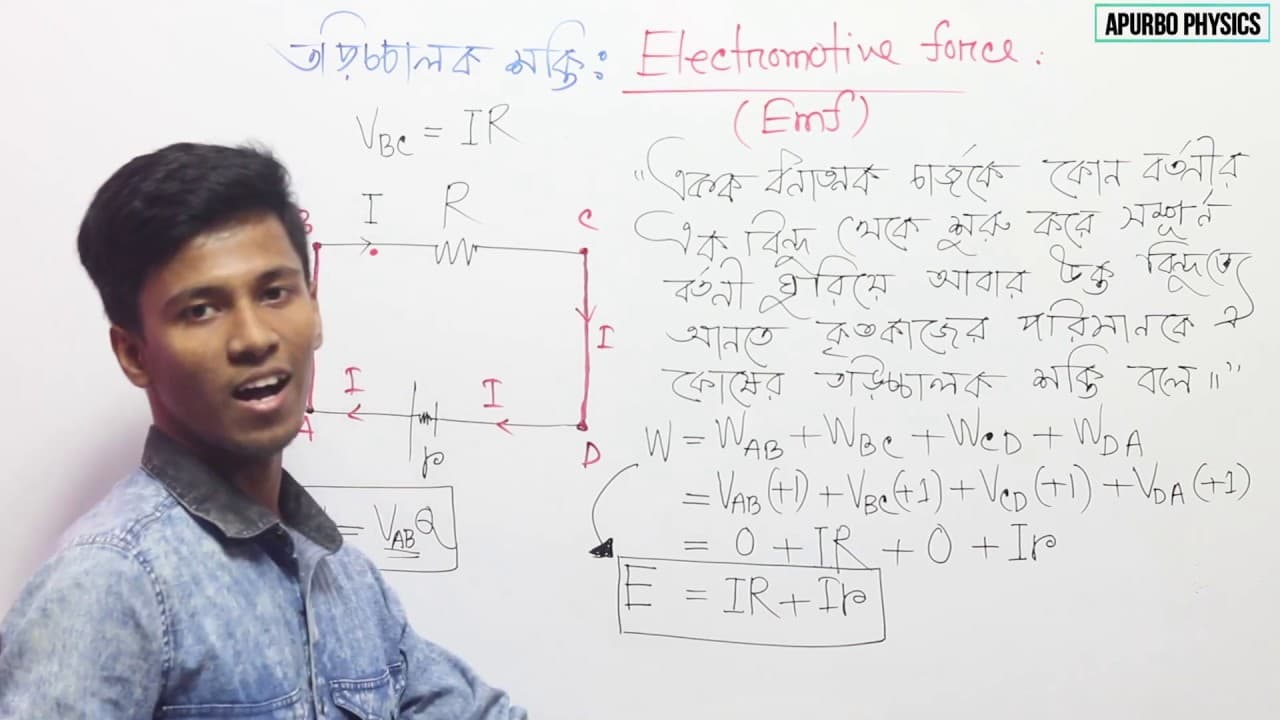 APURBO PHYSICS
তড়িচ্চালক শক্তি: Electromotive force:
(Emf)
V_BC = IR
I R
B C
I
I I
A r D
= V_AB Q
“একক ধনাত্মক চার্জকে কোন বর্তনীর
এক বিন্দু থেকে শুরু করে সম্পূর্ন
বর্তনী ঘুরিয়ে আবার উক্ত বিন্দুতে
আনতে কৃতকাজের পরিমানকে ঐ
কোষের তড়িচ্চালক শক্তি বলে॥”
W = W_AB + W_BC + W_CD + W_DA
= V_AB (+1) + V_BC (+1) + V_CD (+1) + V_DA (+1)
= 0 + IR + 0 + Ir
E = IR + Ir